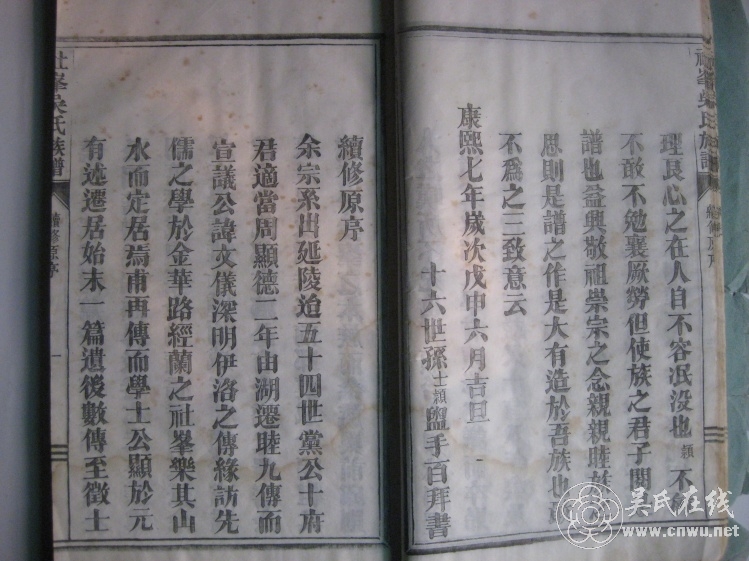 社峯吳氏族譜
續修原序
理良心之在人自不容泯没也頴不
不敢不勉襄厥勞但使族之君子閱
譜也益興敬祖崇宗之念親親睦族
思則是譜之作是大有造於吾族也
不爲之三致意云
康熙七年歲次戊申六月吉旦
十六世孫士頴盥手百拜書
續修原序
余宗系出延陵迨五十四世黨公十府
君適當周顯德二年由湖遷睦九傳而
宣議公諱文儀深明伊洛之傳緣訪先
儒之學於金華路經蘭之社峯樂其山
水而定居焉甫再傳而學士公顯於元
有述遷居始末一篇遺後數傳至徵士
社峯吳氏族譜
續修原序
一
吴氏在线
www.cnwu.net